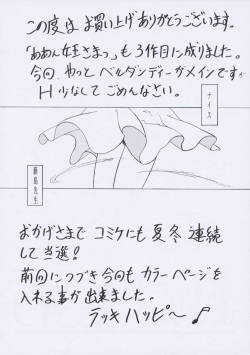 この度は お買い上げ ありがとうございます。
「ああん女王さまっ」も 3作目に成りました。
今回、やっと ベルダンディーがメインです。
H 少なくて ごめんなさい。
ナイス
藤島先生
おかげさまで コミケにも 夏冬 連続
して 当選!
前回につづき 今回も カラーページを
入れる事が 出来ました。
ラッキハッピ〜♪